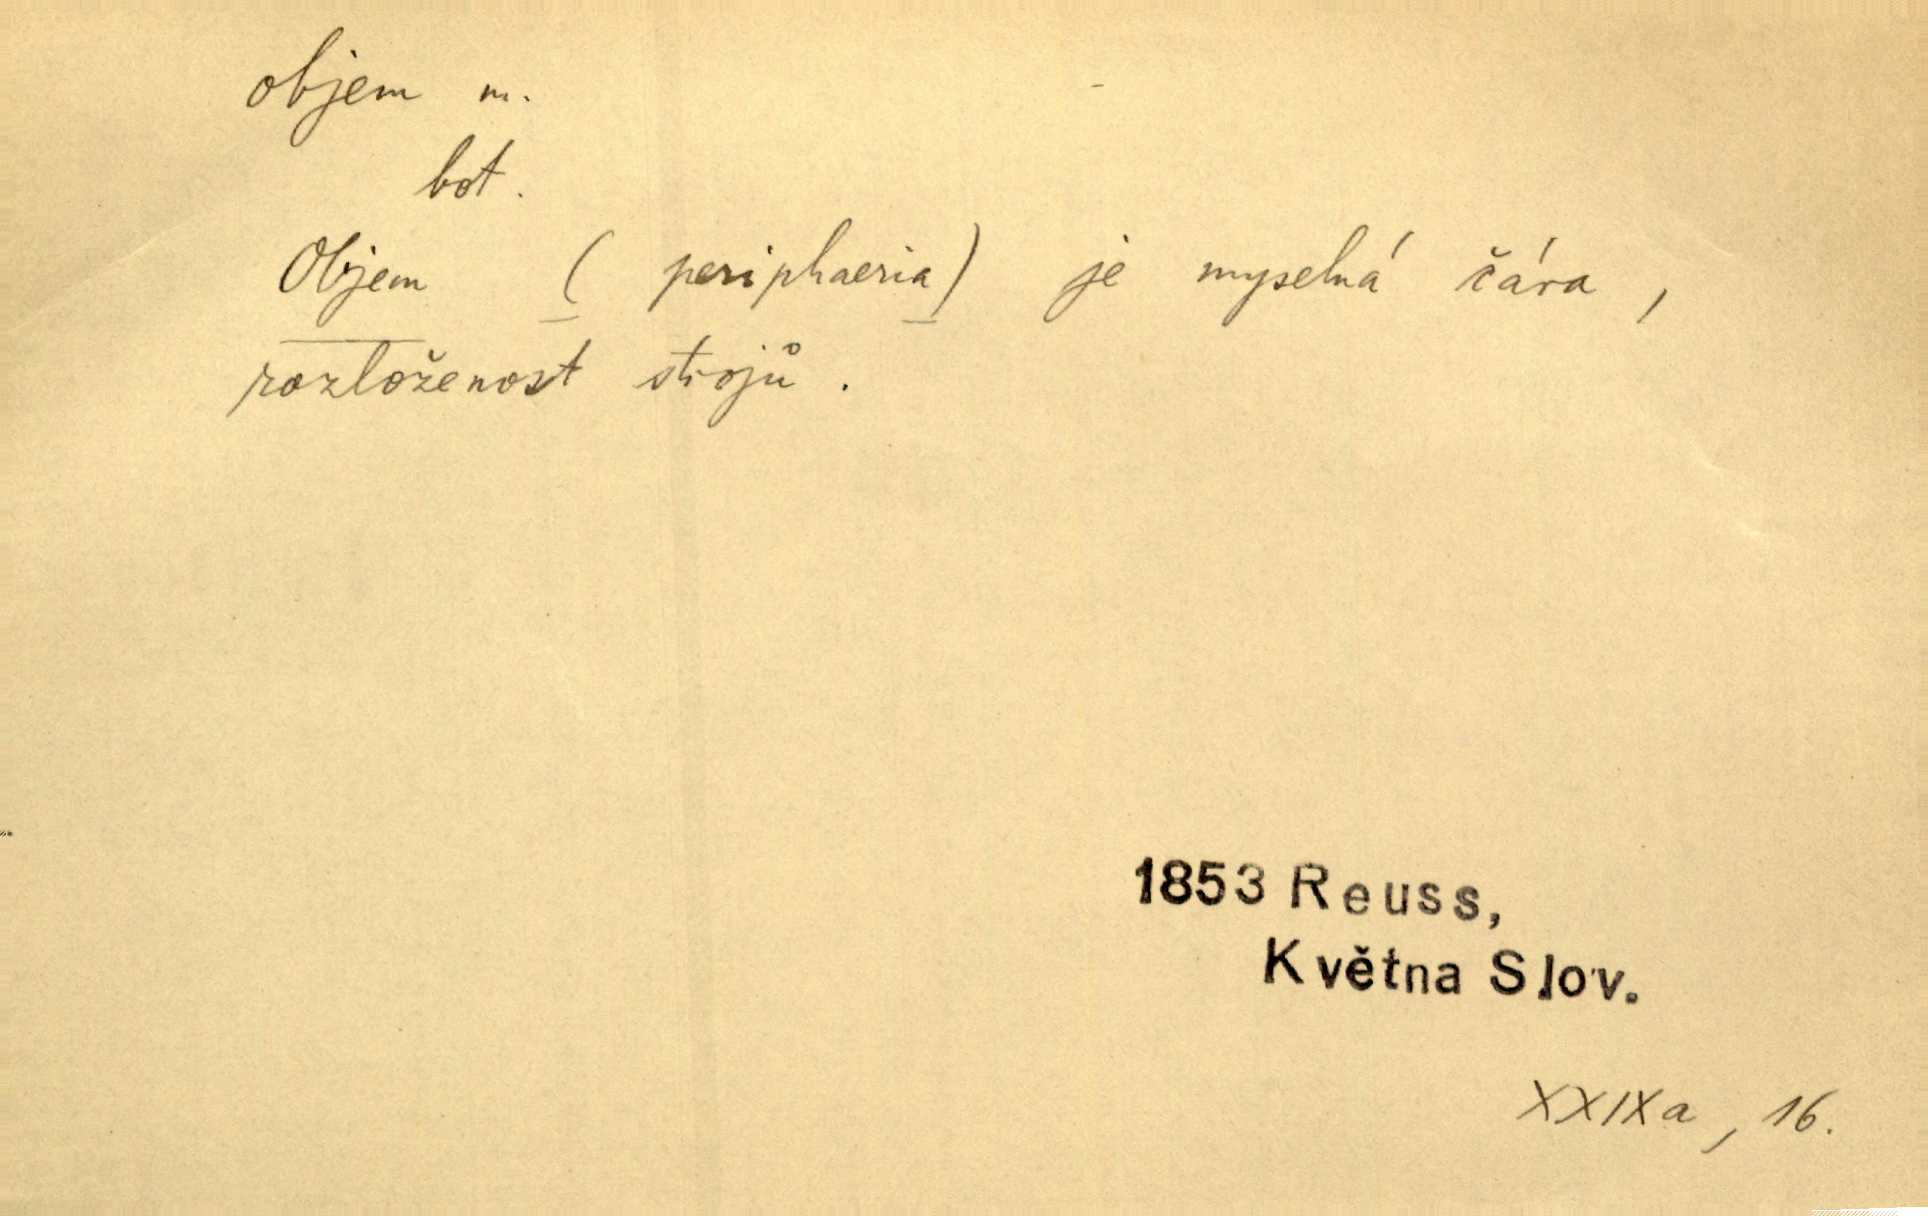 objem m.
bot.
Objem ( periphaeria) je myselná čára,
rozloženost strojů.
1853 Reuss,
Května Slov.
XXIXa, 16.